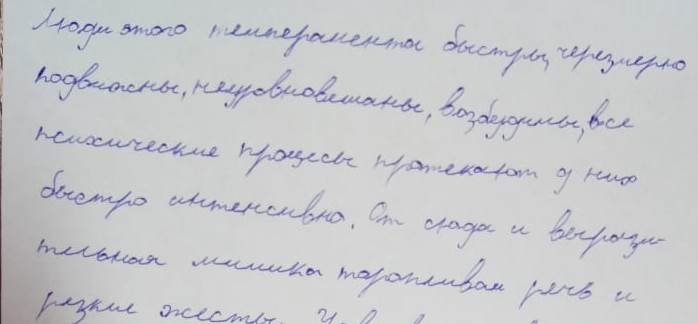 Люди этого темперамента быстры, черезмерно
подвижны, неуровновешаны, возбудимы, все
психические процесы протекают у них
быстро интенсивно. От сюда и вырази-
тельная мимика торапливая речь и
резкие жесты.